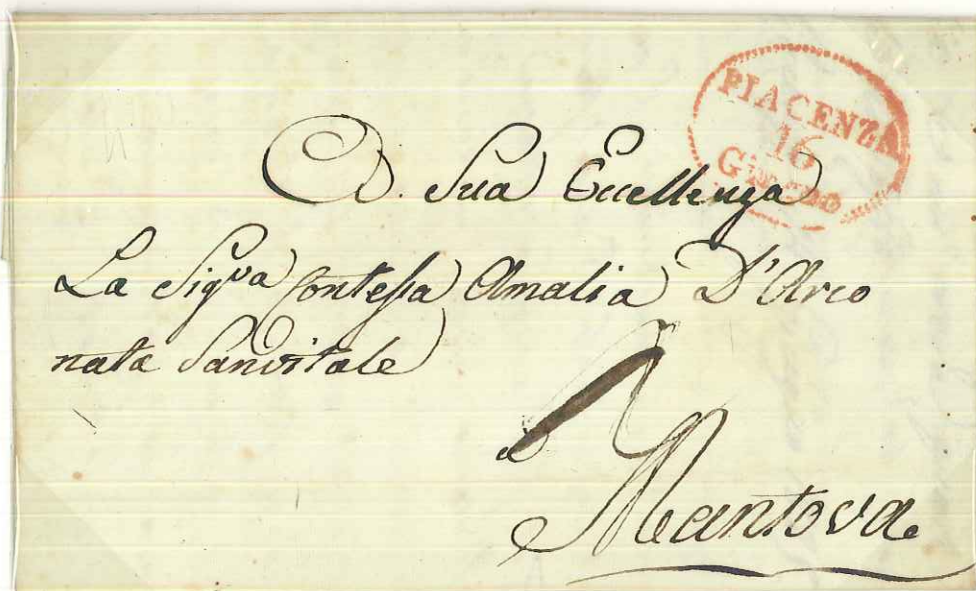 PIACENZA
16
GIUGNO
A. Sua Eccellenza
La Sigra Contessa Amalia D'Arco
nata Sanvitale
Mantova